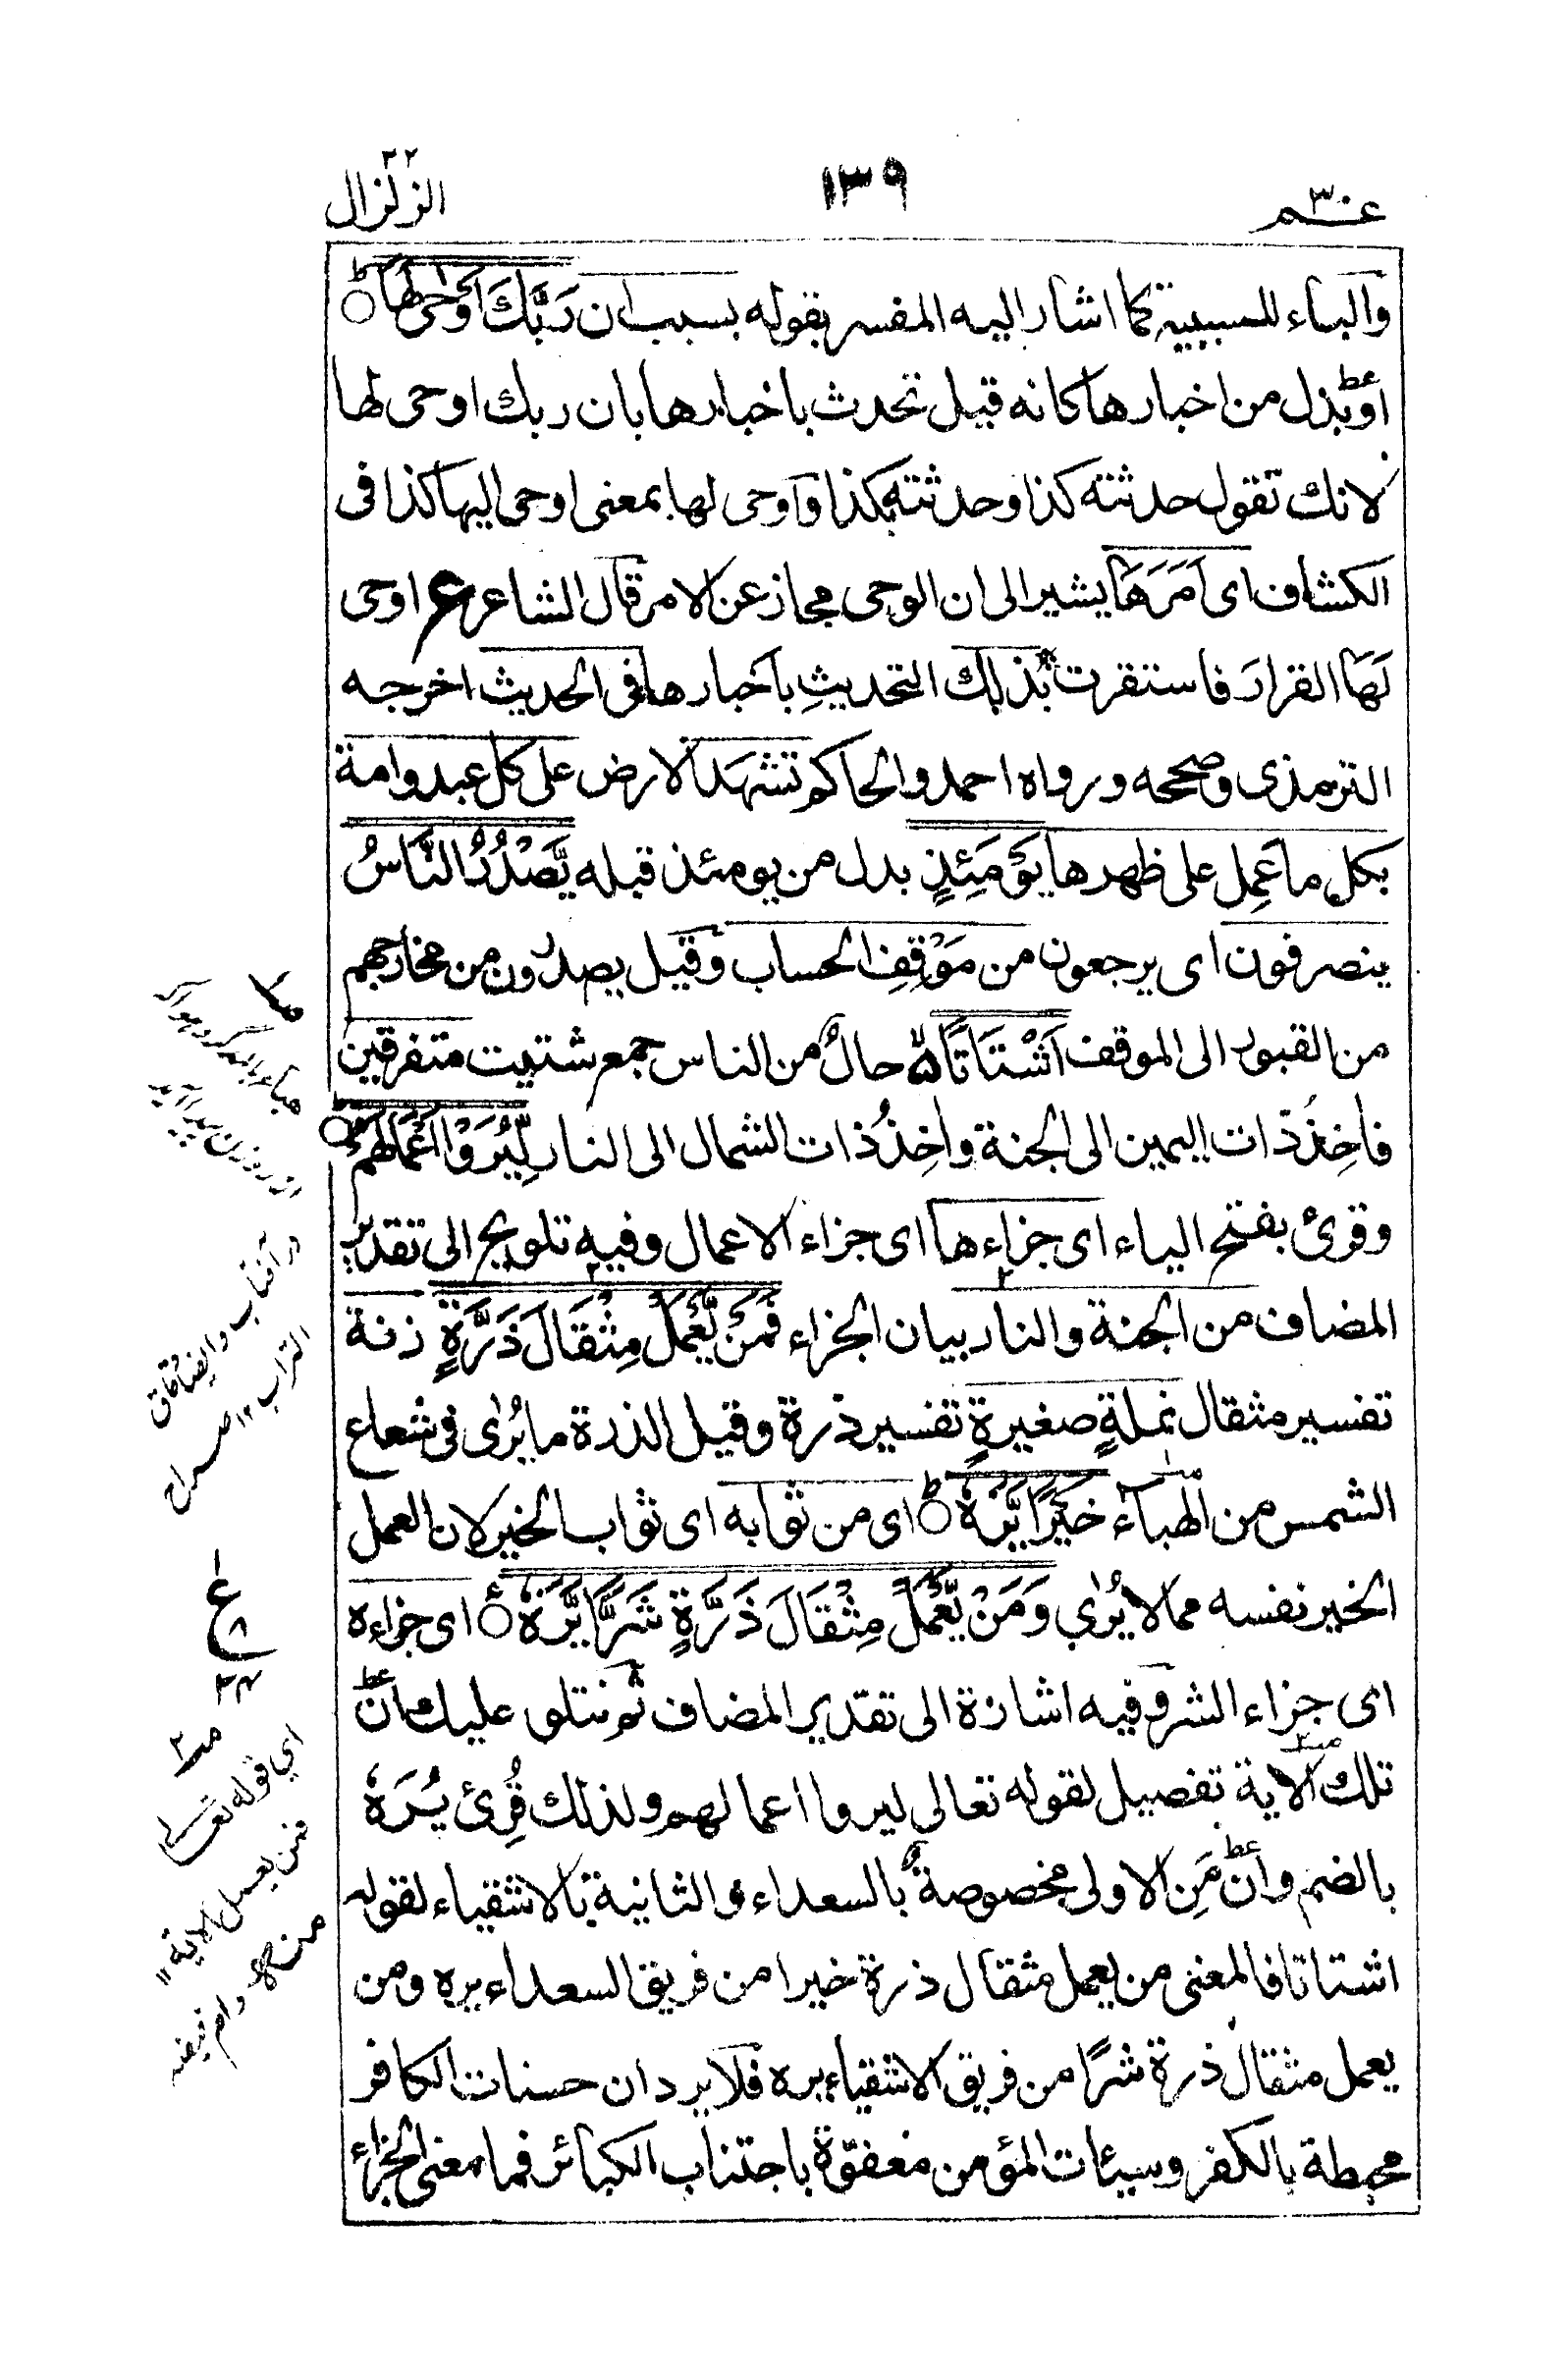 عم ٣٠
١٣٩
الزلزال
والباء للسببية كما اشار اليه المفسر بقوله بسبب ان رَبَّكَ اَوْحٰى لَهَا ○
او بدل من اخبارها كانه قيل تحدث باخبارها بان ربك اوحى لها
لانك تقول حدثته كذا وحدثته بكذا واوحى لها بمعنى اوحى اليها كذا فى
الكشاف اى اَمَرَهَا يشير الى ان الوحى مجاز عن الامر قال الشاعر ع اوحى
لَهَا القرارَ فاستقرت بذلك التحديثِ باخبارها فى الحديث اخرجه
الترمذى وصححه ورواه احمد والحاكم تشهد الارض على كل عبد وامة
بكل ما عَمِل على ظهرها يَوْمَئِذٍ بدل من يومئذ قبله يَّصْدُرُ النَّاسُ
ينصرفون اى يرجعون من مَوْقِفِ الحساب وقيل يصدرون من مخارجهم
من القبور الى الموقف اَشْتَاتًا ۵ حالٌ من الناس جمع شتيت متفرقين
فاخِذٌ ذات اليمين الى الجنة واخِذٌ ذات الشمال الى النار لِّيُرَوْا اَعْمَالَهُمْ ○
وقرئ بفتح الياء اى جزاءها اى جزاء الاعمال وفيه تلويح الى تقدير
المضاف من الجنة والنار بيان الجزاء فَمَنْ يَّعْمَلْ مِثْقَالَ ذَرَّةٍ زنة
تفسير مثقال نملةٍ صغيرةٍ تفسير ذرة وقيل الذرة ما يُرٰى فى شعاع
الشمس من الهباء خَيْرًا يَّرَهٗ ○ اى من ثوابه اى ثواب الخير لان العمل
الخير نفسه مما لا يُرٰى وَمَنْ يَّعْمَلْ مِثْقَالَ ذَرَّةٍ شَرًّا يَّرَهٗ ○ اى جزاءه
اى جزاء الشر وفيه اشارة الى تقدير المضاف ثم نتلو عليك ان
تلك الاية تفصيل لقوله تعالى ليروا اعمالهم ولذلك قُرِئ يُرَهٗ
بالضم وان مَنِ الاولى مخصوصة بالسعداء والثانية بالاشقياء لقوله
اشتاتا فالمعنى من يعمل مثقال ذرة خيرا من فريق السعداء يره ومن
يعمل مثقال ذرة شرًا من فريق الاشقياء يره فلا يرد ان حسنات الكافر
محبطة بالكفر وسيئات المؤمن معفوّة باجتناب الكبائر فما معنى الجزاء
در آفتاب
التراب ١٢ صراح
ع
اي قوله تعالى
فمن يعمل الاية ١١
منه